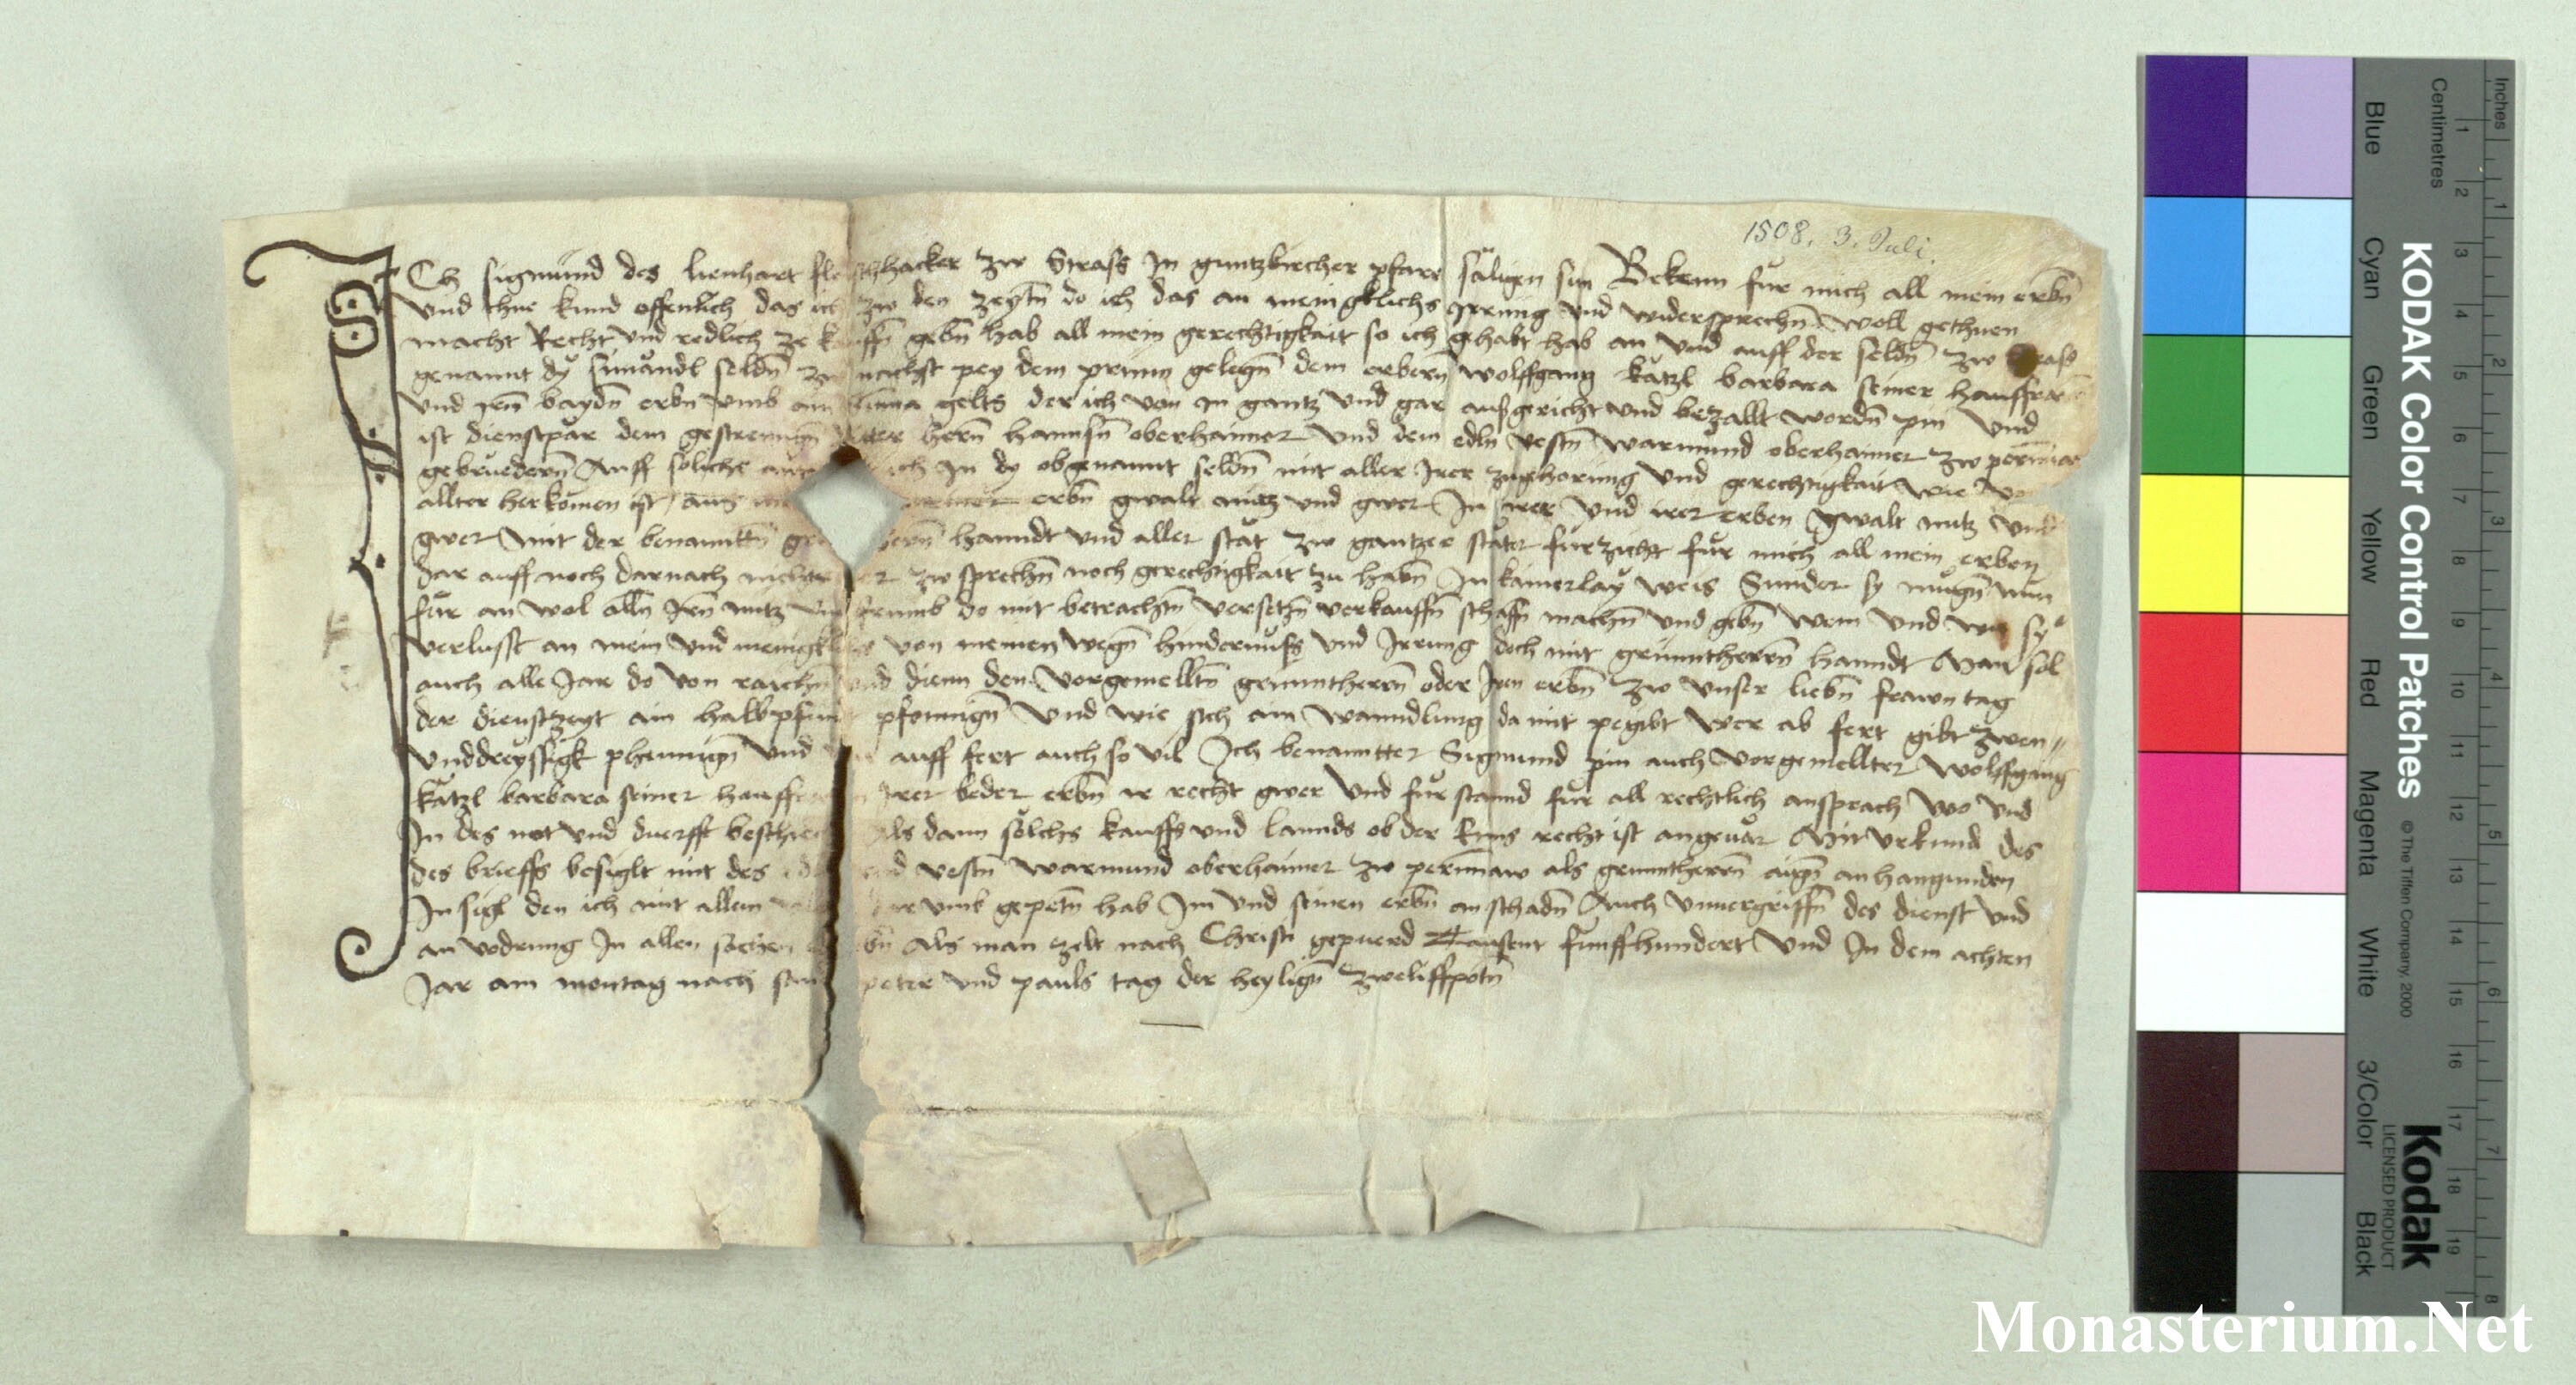 1508. 3. Juli.
ICh sigmund des lienhart fleischhacker zw Strass In guntzkircher pfarr säligen sun Bekenn für mich all mein erbn
Vnd thue kund offenlich das ich zw den zeytn do ich das an menigklichs Irrung vnd widersprechn woll gethuen
macht Recht vnd redlich ze kauffn gebn hab all mein gerechtigkait so ich gehabt hab an vnd auff der seldn zw Strass
genannt dy simandl seldn zw nachst pey dem prunn gelegn dem erbern wolffgang kätzl barbara seiner hausfraw
vnd Irn baydn erbn vmb ain Summa gelts der ich von in gantz vnd gar ausgericht vnd bezallt wordn pin Vnd
ist dienstpär dem gestrenngn Ritter hern hannsn oberhaimer vnd dem edln vestn warmund oberhaimer zw
gebruedern Auff söliche ich In dy obgenannt seldn mit aller Irer zugehorung vnd gerechtigkait wie
allter herkomen ist aus erbn gwalt nutz vnd gwer In irer vnd irer erben gwalt nutz vnd
gwer Mit der benanntn hanndt vnd aller stät zw gantzer stäter fürzicht für mich all mein erben
dar auff noch darnach zw sprechn noch gerechtigkait zu habn In kainerlay weis Sunder sy mugn nun
für an wol alln Irn nutz vnd frumb do mit betrachtn versetzn verkauffn schaffn machn vnd gebn wem vnd wo sy
verlusst an mein vnd menigklichs von meinen wegn hindernuss vnd Irrung doch mit grunntherrn hanndt Man sol
auch alle Jar do von raichn vnd dienn den vorgemelltn grunntherrn oder Iren erbn zw vnser liebn frawn tag
der dienstzeyt ain halb pfunt pfennign vnd wie sich ain wanndlung da mit pegibt wer ab fert gibt zwen
vnddreyssigk phennign vnd auff fert auch so vil Ich benannter Sigmund pin auch vorgemellter wolffgang
kätzl barbara seiner hausfrawn Irer beder erbn ir recht gwer vnd fürstannd für all rechtlich ansprach wo vnd
In des not vnd duerfft beschiecht Als dann sölchs kauffs vnd lannds ob der Enns recht ist angeuär Mit vrkund des
des brieffs besiglt mit des vnd vestn warmund oberhaimer zw als grunntherrn aign anhangunden
Insigl den ich mit allem dar vmb gepetn hab Im vnd seinen erbn an schadn Auch vnuergriffn des dienst vnd
an vodrung In allen sachen Als man zelt nach Christi gepuerd Tausent funffhundert vnd In dem achten
Jar am montag nach sand peter vnd pauls tag der heylign zwelffpotn
KODAK Color Control Patches
© The Tiffen Company, 2000
Kodak
LICENSED PRODUCT
Blue
Cyan
Green
Yellow
Red
Magenta
White
3/Color
Black
Inches
1 2 3 4 5 6 7 8
Centimetres
1 2 3 4 5 6 7 8 9 10 11 12 13 14 15 16 17 18 19
Monasterium.Net